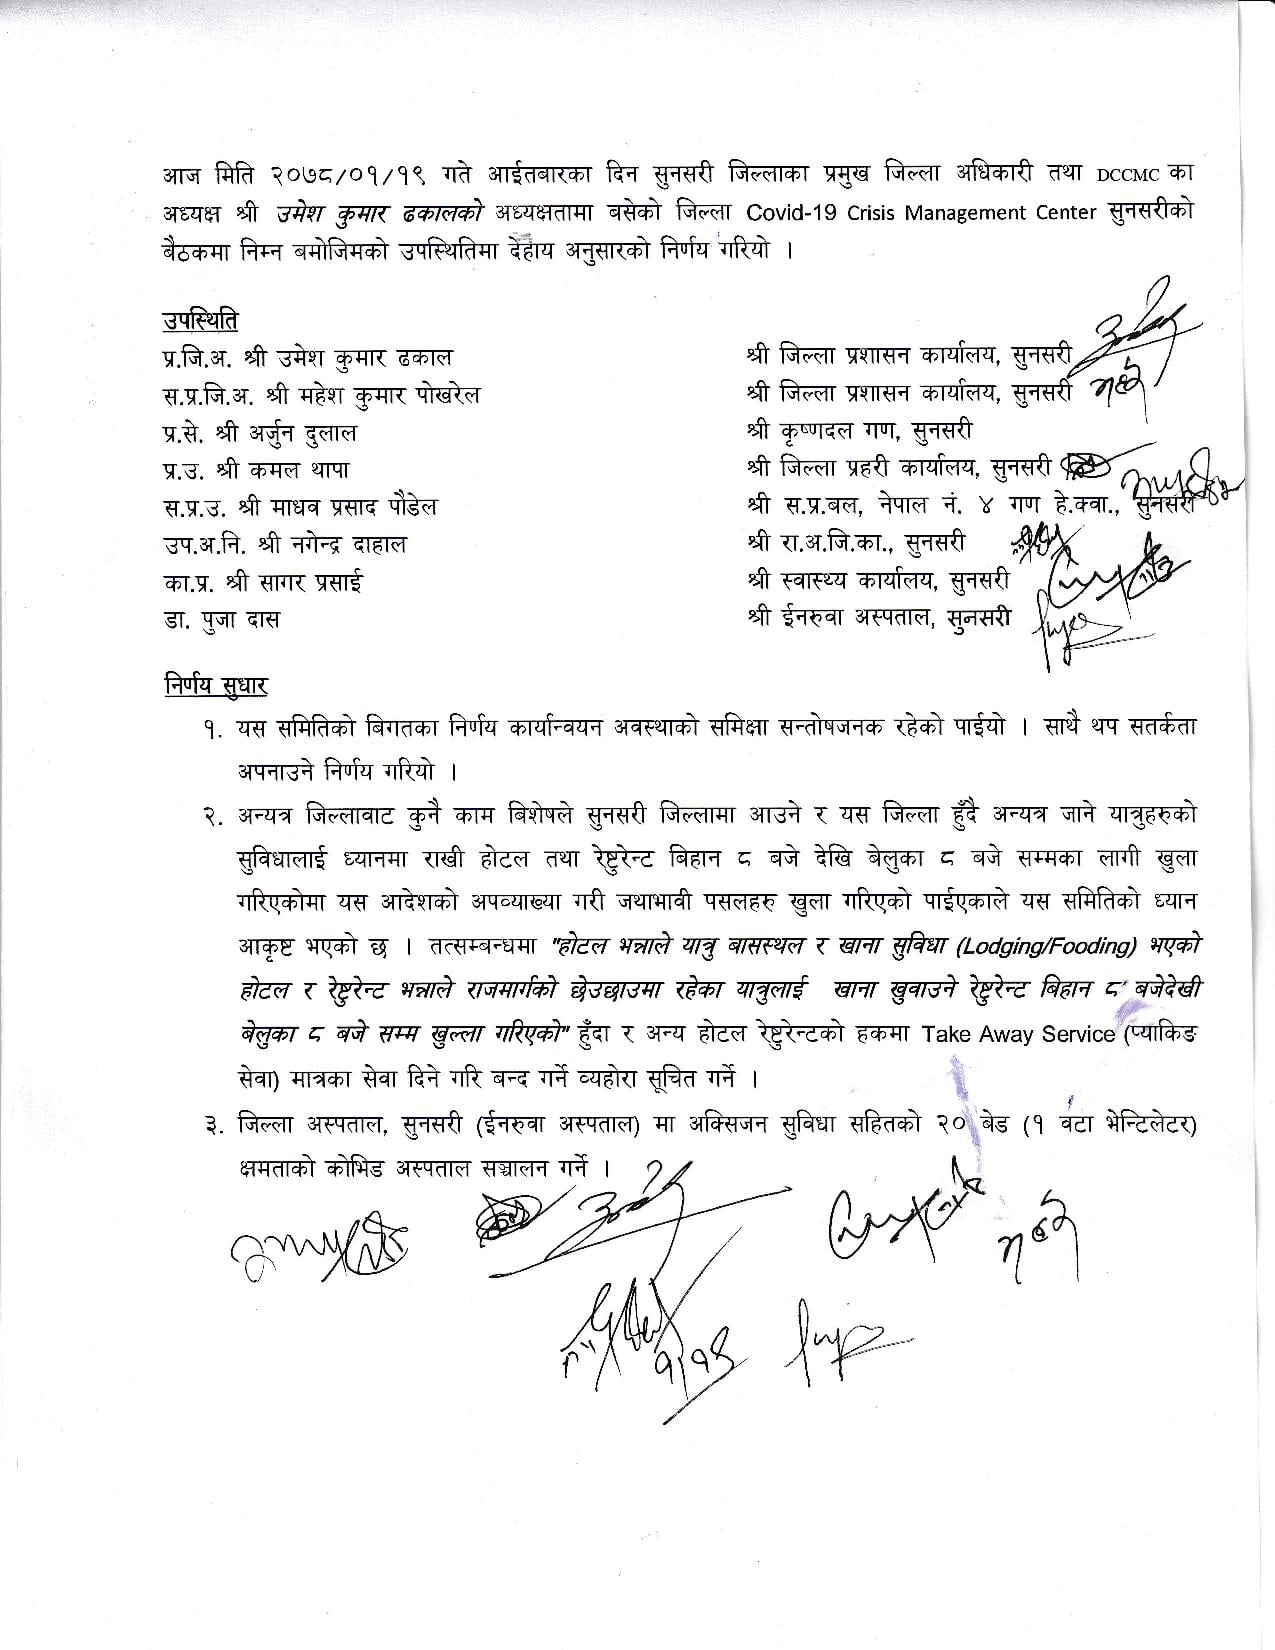 आज मिति २०७८/०१/१९ गते आईतबारका दिन सुनसरी जिल्लाका प्रमुख जिल्ला अधिकारी तथा DCCMC का
अध्यक्ष श्री उमेश कुमार ढकालको अध्यक्षतामा बसेको जिल्ला Covid-19 Crisis Management Center सुनसरीको
बैठकमा निम्न बमोजिमको उपस्थितिमा देहाय अनुसारको निर्णय गरियो ।
उपस्थिति
प्र.जि.अ. श्री उमेश कुमार ढकाल श्री जिल्ला प्रशासन कार्यालय, सुनसरी
स.प्र.जि.अ. श्री महेश कुमार पोखरेल श्री जिल्ला प्रशासन कार्यालय, सुनसरी
प्र.से. श्री अर्जुन दुलाल श्री कृष्णदल गण, सुनसरी
प्र.उ. श्री कमल थापा श्री जिल्ला प्रहरी कार्यालय, सुनसरी
स.प्र.उ. श्री माधव प्रसाद पौडेल श्री स.प्र.बल, नेपाल नं. ४ गण हे.क्वा., सुनसरी
उप.अ.नि. श्री नगेन्द्र दाहाल श्री रा.अ.जि.का., सुनसरी
का.प्र. श्री सागर प्रसाई श्री स्वास्थ्य कार्यालय, सुनसरी
डा. पुजा दास श्री ईनरुवा अस्पताल, सुनसरी
निर्णय सुधार
१. यस समितिको बिगतका निर्णय कार्यान्वयन अवस्थाको समिक्षा सन्तोषजनक रहेको पाईयो । साथै थप सतर्कता
अपनाउने निर्णय गरियो ।
२. अन्यत्र जिल्लावाट कुनै काम बिशेषले सुनसरी जिल्लामा आउने र यस जिल्ला हुँदै अन्यत्र जाने यात्रुहरुको
सुविधालाई ध्यानमा राखी होटल तथा रेष्टुरेन्ट बिहान ८ बजे देखि बेलुका ८ बजे सम्मका लागी खुला
गरिएकोमा यस आदेशको अपव्याख्या गरी जथाभावी पसलहरु खुला गरिएको पाईएकाले यस समितिको ध्यान
आकृष्ट भएको छ । तत्सम्बन्धमा "होटल भन्नाले यात्रु बासस्थल र खाना सुविधा (Lodging/Fooding) भएको
होटल र रेष्टुरेन्ट भन्नाले राजमार्गको छेउछाउमा रहेका यात्रुलाई खाना खुवाउने रेष्टुरेन्ट बिहान ८ बजेदेखी
बेलुका ८ बजे सम्म खुल्ला गरिएको" हुँदा र अन्य होटल रेष्टुरेन्टको हकमा Take Away Service (प्याकिङ
सेवा) मात्रका सेवा दिने गरि बन्द गर्ने व्यहोरा सूचित गर्ने ।
३. जिल्ला अस्पताल, सुनसरी (ईनरुवा अस्पताल) मा अक्सिजन सुविधा सहितको २० बेड (१ वटा भेन्टिलेटर)
क्षमताको कोभिड अस्पताल सञ्चालन गर्ने ।